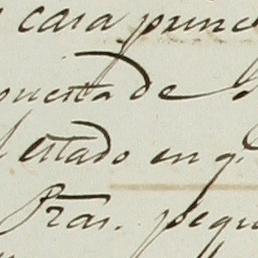 cara princ
puerta de
estado en q.
Fran. pequ